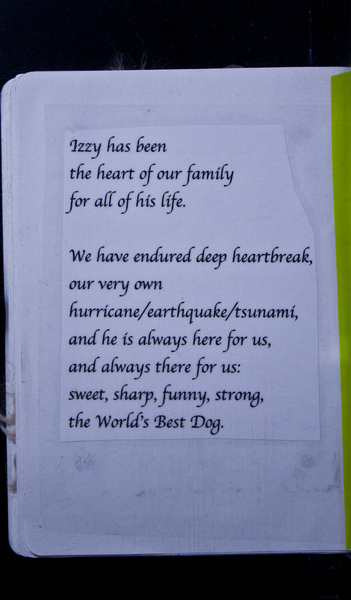 Izzy has been
the heart of our family
for all of his life.
We have endured deep heartbreak,
our very own
hurricane/earthquake/tsunami,
and he is always here for us,
and always there for us:
sweet, sharp, funny, strong,
the World's Best Dog.